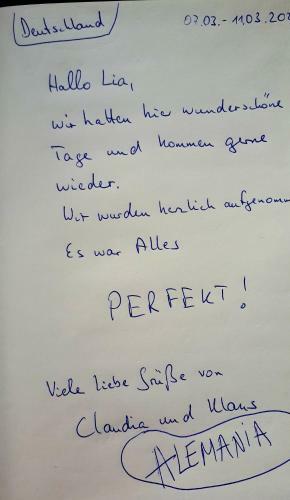 Deutschland
07.03. - 11.03.202
Hallo Lia,
wir hatten hier wunderschöne
Tage und kommen gerne
wieder.
Wir wurden herzlich aufgenomm
Es war Alles
PERFEKT!
Viele liebe Grüße von
Claudia und Klaus
ALEMANIA